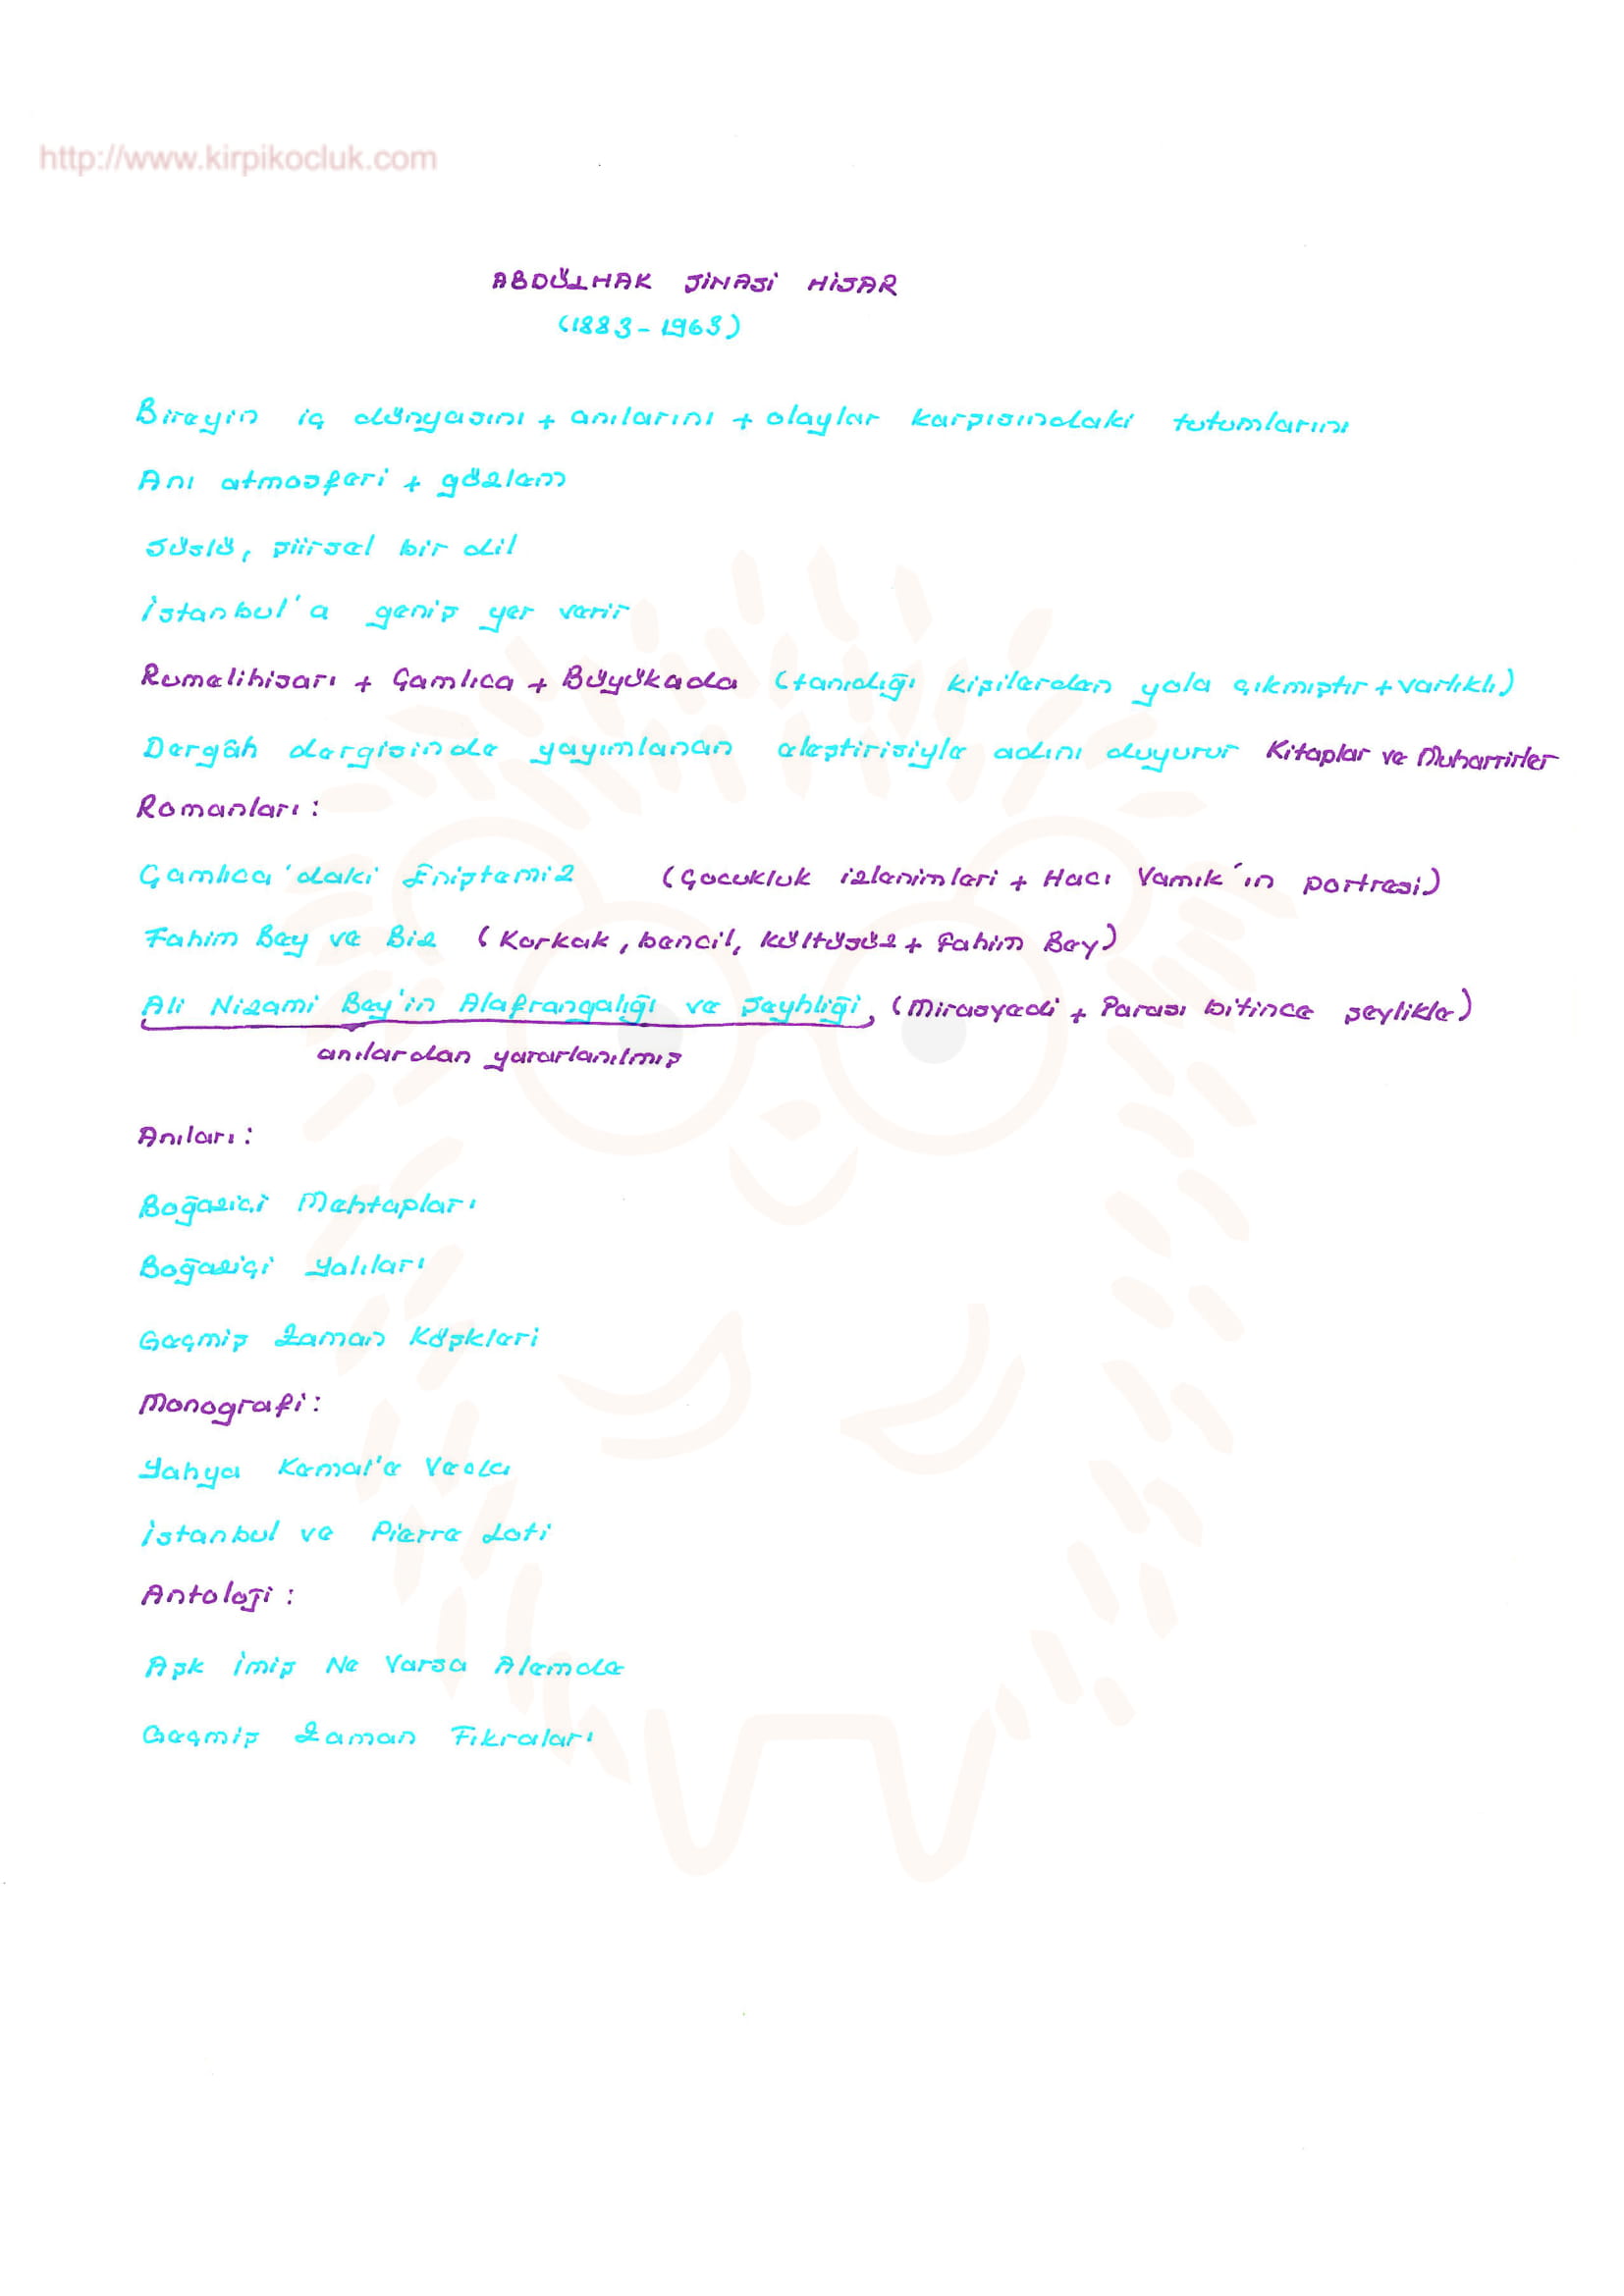 http://www.kirpikocluk.com
ABDÜLHAK ŞİNASİ HİSAR
(1883-1963)
Bireyin iç dünyasını + anılarını + olaylar karşısındaki tutumlarını
Anı atmosferi + gözlem
Süslü, şiirsel bir dil
İstanbul'a geniş yer verir
Rumelihisarı + Çamlıca + Büyükada (tanıdığı kişilerden yola çıkmıştır + varlıklı)
Dergâh dergisinde yayımlanan eleştirisiyle adını duyurur Kitaplar ve Muharrirler
Romanları:
Çamlıca'daki Eniştemiz (Çocukluk izlenimleri + Hacı Vamık'ın portresi)
Fahim Bey ve Biz (Korkak, bencil, kültüsüz + Fahim Bey)
Ali Nizami Bey'in Alafrangalığı ve Şeyhliği, (Mirasyedi + Parası bitince şeylikle)
anılardan yararlanılmış
Anıları:
Boğaziçi Mehtapları
Boğaziçi Yalıları
Geçmiş Zaman Köşkleri
Monografi:
Yahya Kemal'e Veda
İstanbul ve Pierre Loti
Antoloji:
Aşk İmiş Ne Varsa Alemde
Geçmiş Zaman Fıkraları